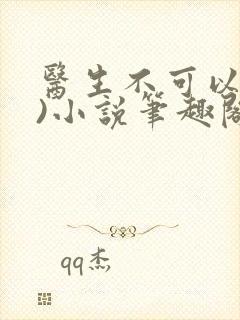 醫生不可以
)小說筆趣閣
qq杰